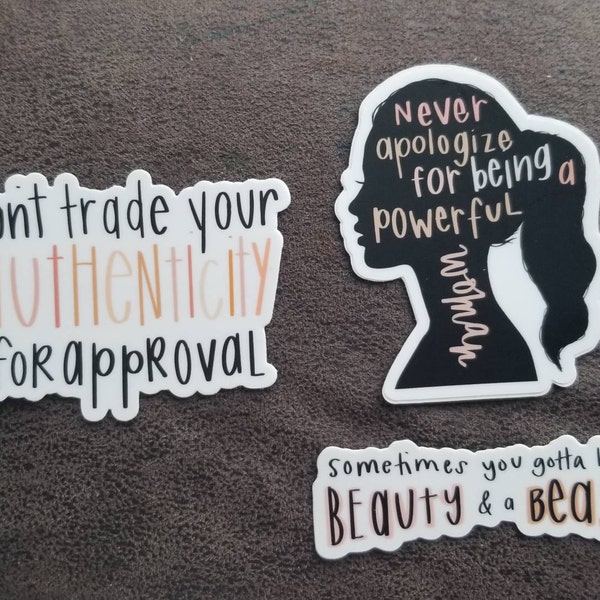 ont trade your
AUTHENTICITY
FOR APPROVAL
NEVER
apologize
for being a
POWERFUL
woman
sometimes you gotta b
BEAUTY & a BEA